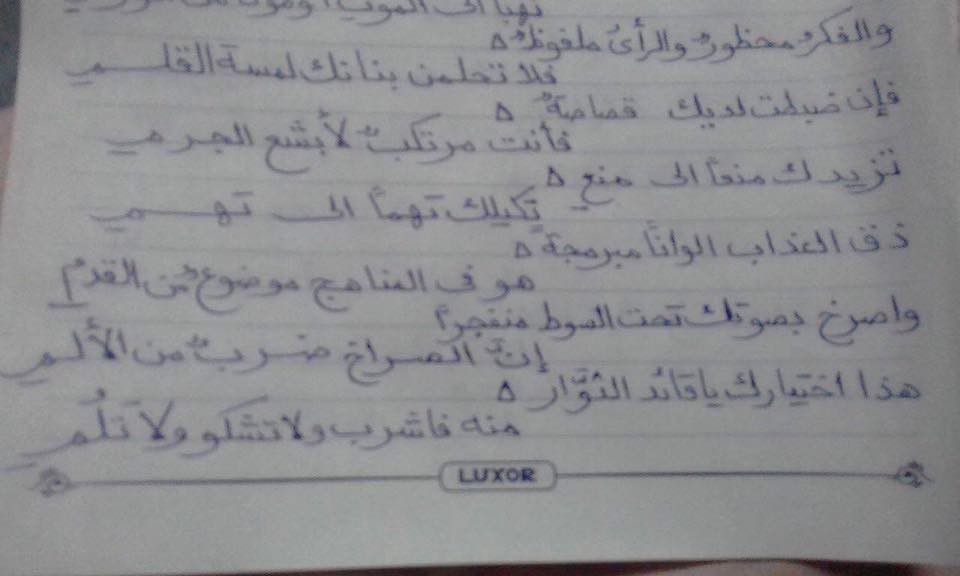 تهبا الى الموت
والفكرُ محظورٌ والرأىُ ملفوظٌ ۵
فلا تحلمن بنانك لمسة القلــمي
فإن ضبطت لديك قصاصةٌ ۵
فأنت مرتكبٌ لأبشع الجرمي
تزيدك منعاً الى منعٍ ۵
تكيلك تهماً الى تهــمي
ذق العذاب الواناً مبرمجة ۵
هو فى المناهج موضوعٌ من القدمِ
واصرخ بصوتك تحت السوط منفجراً
إنَّ الصراخ ضربٌ من الألــمي
هذا اختيارك ياقائد الثوَّار ۵
منه فاشرب ولاتشكو ولا تلُمي
LUXOR